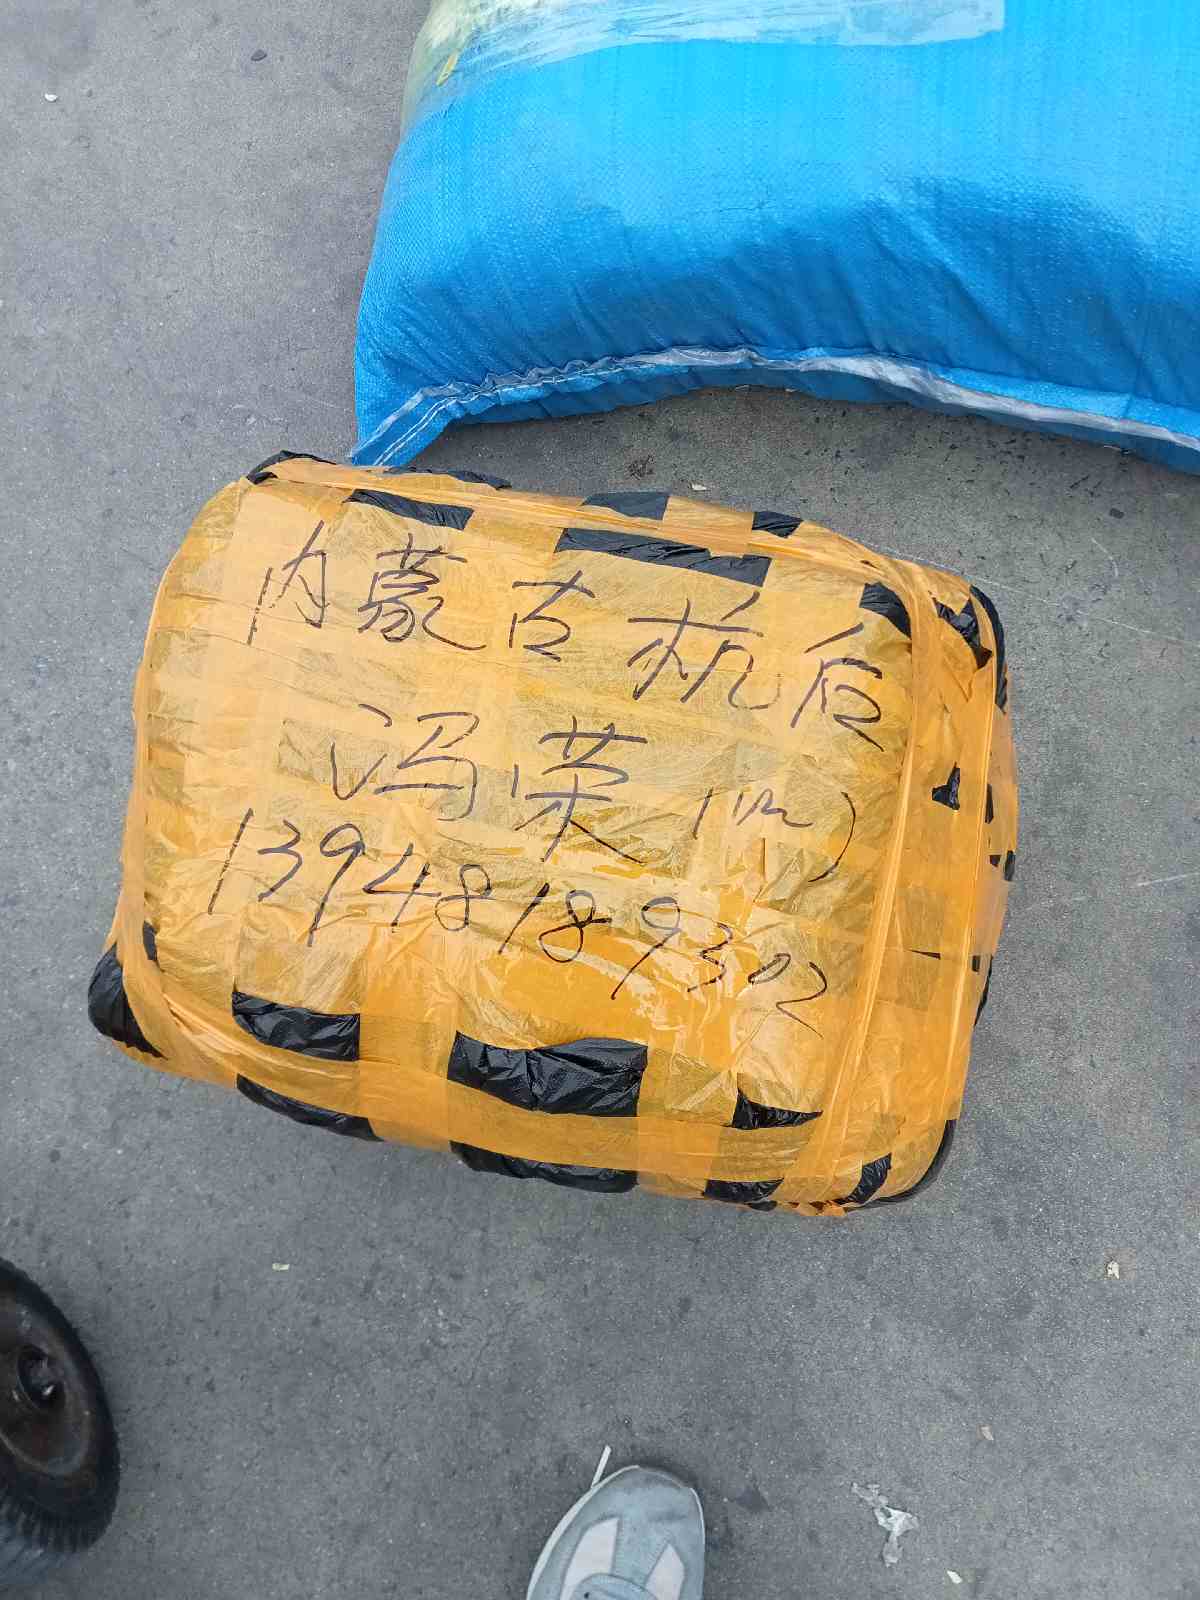 内蒙古杭后
冯荣(收)
13948189302